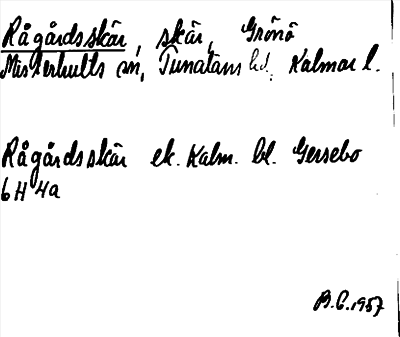 Rågårdsskär, skär, Grönö
Misterhults sn, Tunaläns hd, Kalmar l.
Rågårdsskär ek. Kalm. bl. Gersebo
6H4a
B.C. 1957